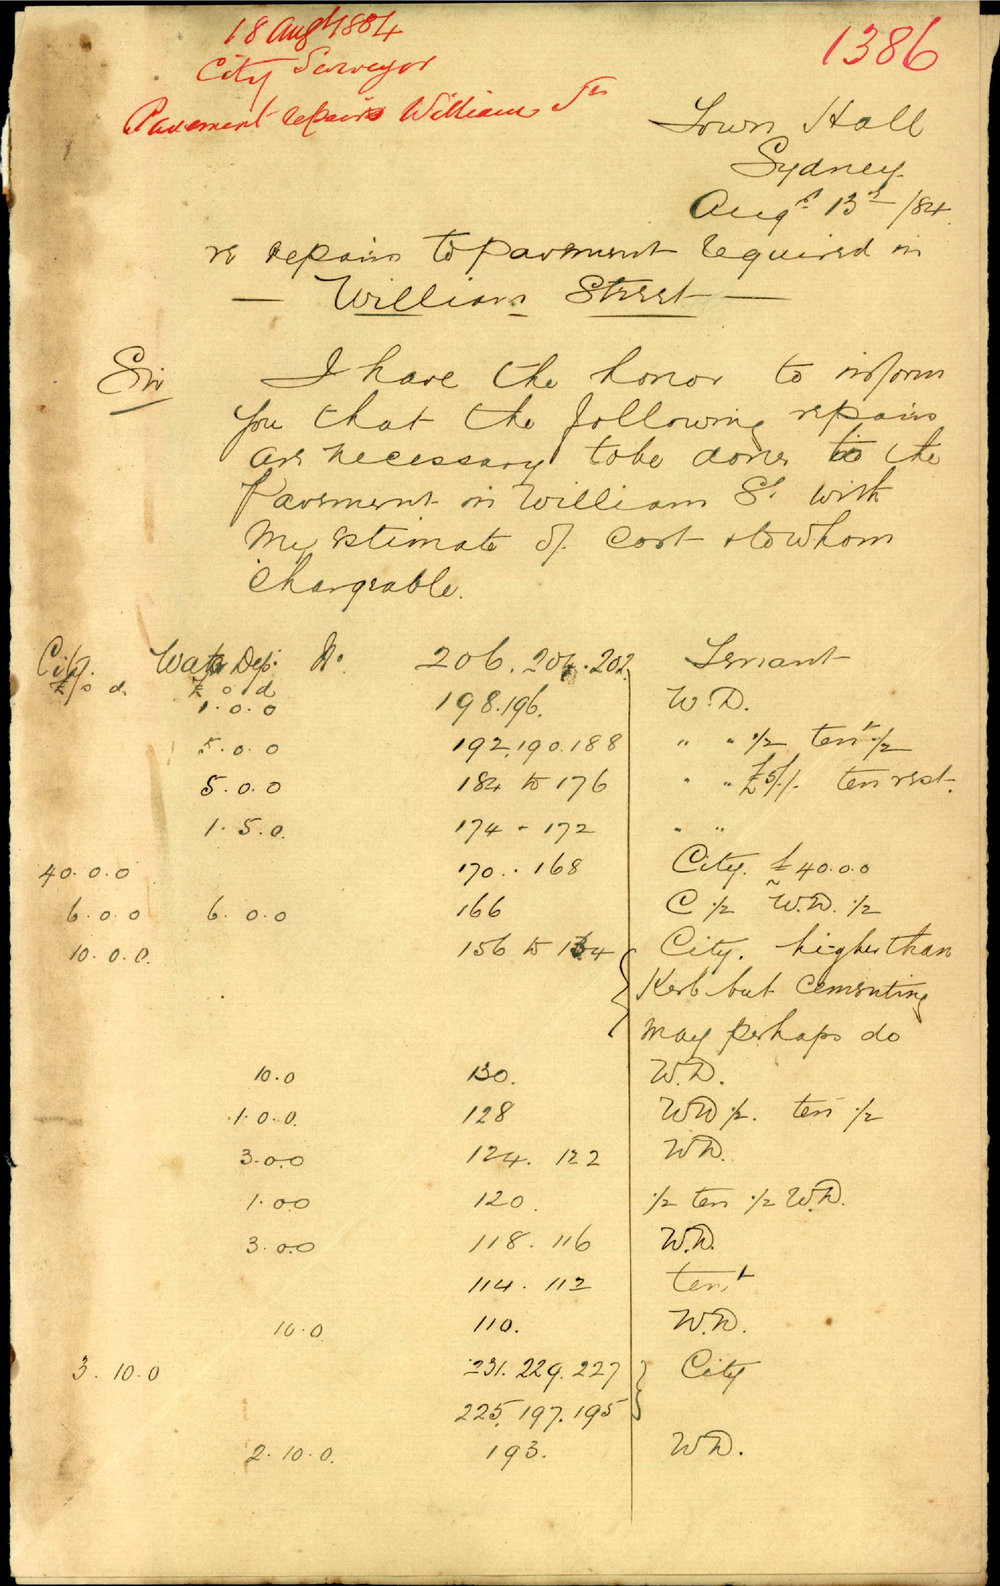 18 Augt 1884
1386
City Surveyor
Pavement repairs William St
Town Hall
Sydney
Augt 13th /84
re repairs to pavement required in
— William Street —
Sir I have the honor to inform
you that the following repairs
are necessary to be done to the
Pavement in William St. with
my estimate of cost & to whom
Chargeable.
City. Water Dep. No. 206. 204. 202 Tenant
£ s d. £ s d
1. 0. 0 198. 196. W.D.
5. 0. 0 192. 190. 188 " " ½ tent ½
5. 0. 0 184 to 176 " " £5/./. ten rest.
1. 5. 0. 174 - 172 " "
40. 0. 0 170. . 168 City. £40.0.0
6. 0. 0 6. 0. 0 166 C ½ W.D. ½
10. 0. 0. 156 to 134 City. higher than
Kerb but cementing
may perhaps do
10. 0 130. W.D.
1. 0. 0. 128 WD ½. ten ½
3. 0. 0 124. 122 WD.
1. 0 0 120. ½ ten ½ W.D.
3. 0. 0 118. 116 W.D.
114. 112 tent
10. 0. 110. W.D.
3. 10. 0 231. 229. 227 City
225. 197. 195
2. 10. 0. 193. WD.